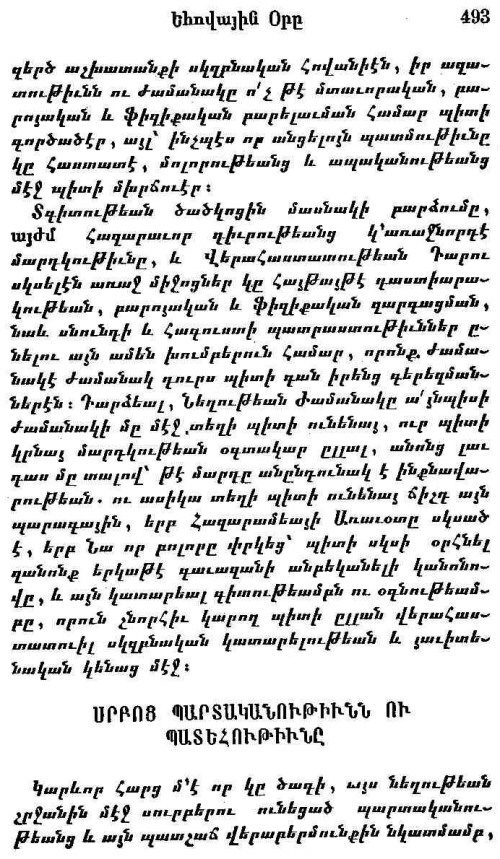 Եհովային Օրը 493
զերծ աշխատանքի սկզբնական Հովանիէն, իր ազա-
տութիւնն ու ժամանակը ո՛չ թէ մտաւորական, բա-
րոյական և ֆիզիքական բարելաւման Համար պիտի
գործածէր, այլ՝ ինչպէս որ անցելոյն պատմութիւնը
կը Հաստատէ, մոլորութեանց և ապականութեանց
մէջ պիտի մխրճուէր։
Տգիտութեան ծածկոցին մասնակի բարձումը,
այժմ Հազարաւոր գիւրութեանց կ՚առաջնորդէ
մարդկութիւնը, և Վերահաստատութեան Դարու
սկսելէն առաջ միջոցներ կը Հայթայթէ դաստիարա-
կութեան, բարոյական և ֆիզիքական զարգացման,
նաև սնունդի և Հագուստի պատրաստութիւններ ը-
նելու այն ամեն խումբերուն Համար, որոնք ժամա-
նակէ ժամանակ դուրս պիտի գան իրենց գերեզման-
ներէն։ Դարձեալ, Նեղութեան Ժամանակը ա՛յնպիսի
ժամանակի մը մէջ տեղի պիտի ունենայ, ուր պիտի
կրնայ մարդկութեան օգտակար ըլլալ, անոնց լաւ
դաս մը տալով՝ թէ մարդը անընդունակ է ինքնավա-
րութեան. ու ասիկա տեղի պիտի ունենայ ճիշդ այն
պարագային, երբ Հազարամեայի Առաւօտը սկսած
է, երբ Նա որ բոլորը փրկեց՝ պիտի սկսի օրհնել
զանոնք երկաթէ գաւազանի անբեկանելի կանոնո-
վը, և այն կատարեալ գիտութեամբն ու օգնութեամ-
բը, որուն շնորհիւ կարող պիտի ըլլան վերահաս-
տատուիլ սկզբնական կատարելութեան և յաւիտե-
նական կենաց մէջ։
ՍՐԲՈՑ ՊԱՐՏԱԿԱՆՈՒԹԻՒՆՆ ՈՒ
ՊԱՏԵՀՈՒԹԻՒՆԸ
Կարևոր Հարց մ՚է որ կը ծագի, այս նեղութեան
շրջանին մէջ սուրբերու ունեցած պարտականու-
թեանց և այն պատշաճ վերաբերմունքին նկատմամբ,